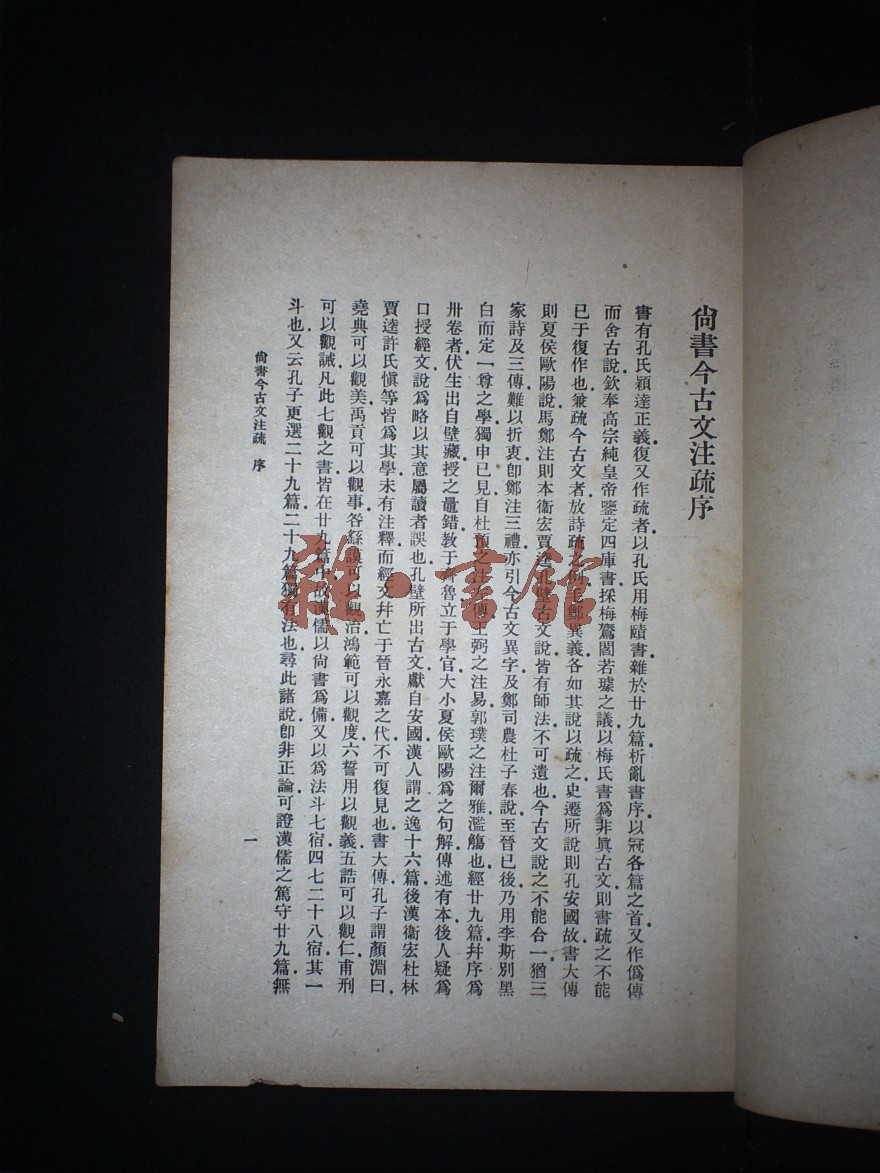 尙書今古文注疏序
書有孔氏穎達正義復又作疏者以孔氏用梅賾書雜於廿九篇析亂書序以冠各篇之首又作僞傳
而舍古說欽奉高宗純皇帝鑒定四庫書採梅鷟閻若璩之議以梅氏書爲非眞古文則書疏之不能
已于復作也兼疏今古文者放詩疏之例毛鄭異義各如其說以疏之史遷所說則孔安國故書大傳
則夏侯歐陽說馬鄭注則本衞宏賈逵孔壁古文說皆有師法不可遺也今古文說之不能合一猶三
家詩及三傳難以折衷卽鄭注三禮亦引今古文異字及鄭司農杜子春說至晉已後乃用李斯別黑
白而定一尊之學獨申已見自杜預之注左傳王弼之注易郭璞之注爾雅濫觴也經廿九篇幷序爲
卅卷者伏生出自壁藏授之鼂錯教于齊魯立于學官大小夏侯歐陽爲之句解傳述有本後人疑爲
口授經文說爲略以其意屬讀者誤也孔壁所出古文獻自安國漢人謂之逸十六篇後漢衞宏杜林
賈逵許氏愼等皆爲其學未有注釋而經文幷亡于晉永嘉之代不可復見也書大傳孔子謂顏淵曰
堯典可以觀美禹貢可以觀事咎繇謨可以觀治鴻範可以觀度六誓用以觀義五誥可以觀仁甫刑
可以觀誡凡此七觀之書皆在廿九篇中故漢儒以尙書爲備又以爲法斗七宿四七二十八宿其一
斗也又云孔子更選二十九篇二十九篇獨有法也尋此諸說卽非正論可證漢儒之篤守廿九篇無
尙書今古文注疏 序
一
雜·書館